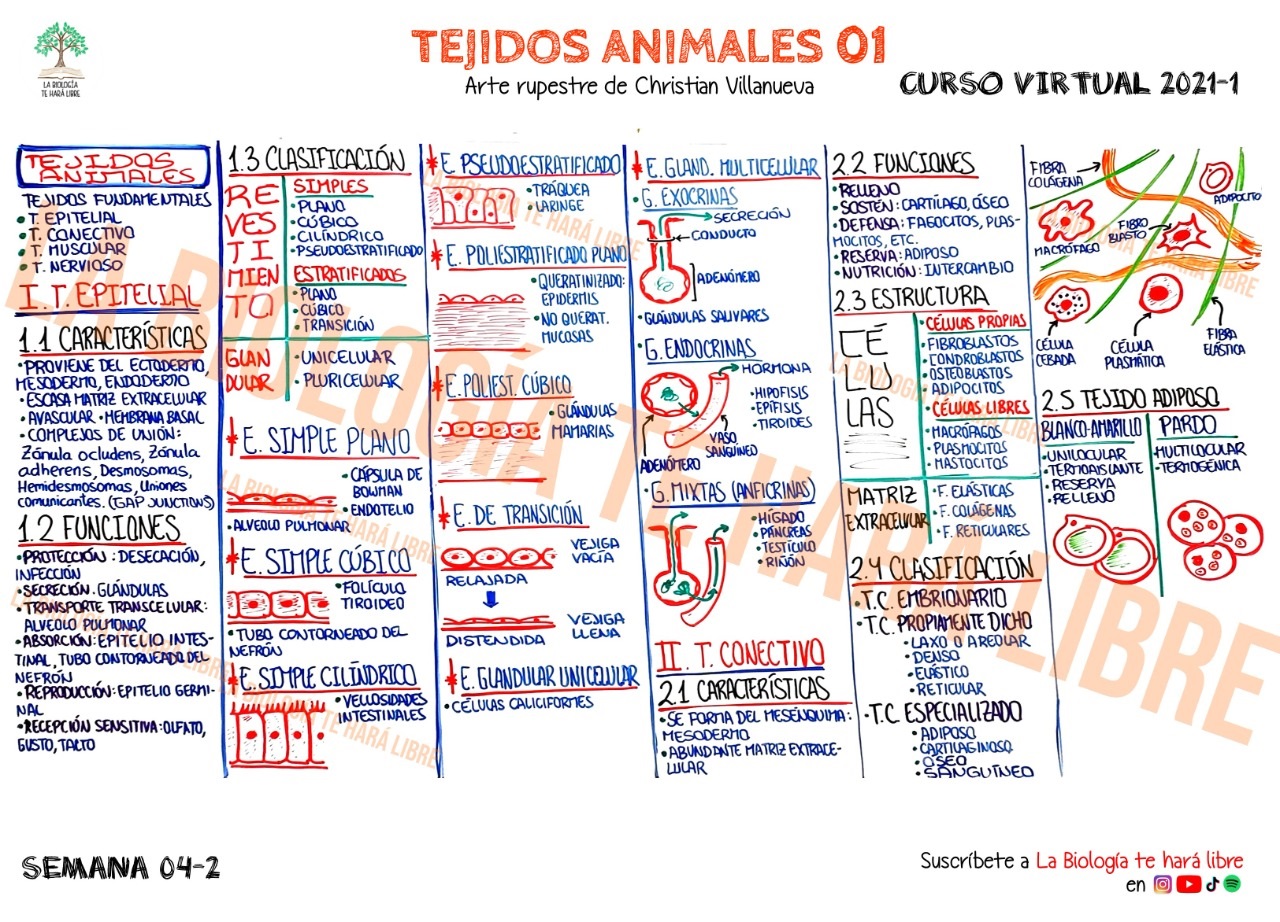 LA BIOLOGÍA
TE HARÁ LIBRE
TEJIDOS ANIMALES 01
Arte rupestre de Christian Villanueva
CURSO VIRTUAL 2021-1
TEJIDOS
ANIMALES
TEJIDOS FUNDAMENTALES
• T. EPITELIAL
• T. CONECTIVO
• T. MUSCULAR
• T. NERVIOSO
I. T. EPITELIAL
1.1 CARACTERÍSTICAS
• PROVIENE DEL ECTODERMO,
MESODERMO, ENDODERMO
• ESCASA MATRIZ EXTRACELULAR
• AVASCULAR • MEMBRANA BASAL
• COMPLEJOS DE UNIÓN:
Zónula ocludens, Zónula
adherens, Desmosomas,
Hemidesmosomas, Uniones
comunicantes. (GAP JUNCTIONS)
1.2 FUNCIONES
• PROTECCIÓN: DESECACIÓN,
INFECCIÓN
• SECRECIÓN: GLÁNDULAS
• TRANSPORTE TRANSCELULAR:
ALVEOLO PULMONAR
• ABSORCIÓN: EPITELIO INTES-
TINAL, TUBO CONTORNEADO DEL
NEFRÓN
• REPRODUCCIÓN: EPITELIO GERMI-
NAL
• RECEPCIÓN SENSITIVA: OLFATO,
GUSTO, TACTO
1.3 CLASIFICACIÓN
RE
VES
TI
MIEN
TO
SIMPLES
• PLANO
• CÚBICO
• CILÍNDRICO
• PSEUDOESTRATIFICADO
ESTRATIFICADOS
• PLANO
• CÚBICO
• TRANSICIÓN
GLAN
DULAR
• UNICELULAR
• PLURICELULAR
* E. SIMPLE PLANO
• CÁPSULA DE
BOWMAN
• ENDOTELIO
• ALVEOLO PULMONAR
* E. SIMPLE CÚBICO
• FOLÍCULO
TIROIDEO
• TUBO CONTORNEADO DEL
NEFRÓN
* E. SIMPLE CILÍNDRICO
• VELLOSIDADES
INTESTINALES
* E. PSEUDOESTRATIFICADO
• TRÁQUEA
• LARINGE
* E. POLIESTRATIFICADO PLANO
• QUERATINIZADO:
EPIDERMIS
• NO QUERAT.
MUCOSAS
* E. POLIEST. CÚBICO
• GLÁNDULAS
MAMARIAS
* E. DE TRANSICIÓN
VEJIGA
VACÍA
RELAJADA
VEJIGA
LLENA
DISTENDIDA
* E. GLANDULAR UNICELULAR
• CÉLULAS CALICIFORMES
* E. GLAND. MULTICELULAR
• G. EXOCRINAS
SECRECIÓN
CONDUCTO
ADENÓMERO
• GLÁNDULAS SALIVARES
• G. ENDOCRINAS
HORMONA
• HIPOFISIS
• EPÍFISIS
• TIROIDES
VASO
SANGUÍNEO
ADENÓMERO
• G. MIXTAS (ANFICRINAS)
• HÍGADO
• PÁNCREAS
• TESTÍCULO
• RIÑÓN
II. T. CONECTIVO
2.1 CARACTERÍSTICAS
• SE FORMA DEL MESÉNQUIMA:
MESODERMO
• ABUNDANTE MATRIZ EXTRACE-
LULAR
2.2 FUNCIONES
• RELLENO
• SOSTÉN: CARTÍLAGO, ÓSEO
• DEFENSA: FAGOCITOS, PLAS-
MOCITOS, ETC.
• RESERVA: ADIPOSO
• NUTRICIÓN: INTERCAMBIO
2.3 ESTRUCTURA
CÉ
LU
LAS
• CÉLULAS PROPIAS
• FIBROBLASTOS
• CONDROBLASTOS
• OSTEOBLASTOS
• ADIPOCITOS
• CÉLULAS LIBRES
• MACRÓFAGOS
• PLASMOCITOS
• MASTOCITOS
MATRIZ
EXTRACELULAR
• F. ELÁSTICAS
• F. COLÁGENAS
• F. RETICULARES
2.4 CLASIFICACIÓN
• T.C. EMBRIONARIO
• T.C. PROPIAMENTE DICHO
• LAXO O AREOLAR
• DENSO
• ELÁSTICO
• RETICULAR
• T.C. ESPECIALIZADO
• ADIPOSO
• CARTILAGINOSO
• OSEO
• SANGUÍNEO
FIBRA
COLÁGENA
ADIPOCITO
FIBRO
BLASTO
MACRÓFAGO
CÉLULA
CEBADA
CÉLULA
PLASMÁTICA
FIBRA
ELÁSTICA
2.5 TEJIDO ADIPOSO
BLANCO-AMARILLO
• UNILOCULAR
• TERMOAISLANTE
• RESERVA
• RELLENO
PARDO
• MULTILOCULAR
• TERMOGÉNICA
LA BIOLOGÍA TE HARÁ LIBRE
SEMANA 04-2
Suscríbete a La Biología te hará libre
en